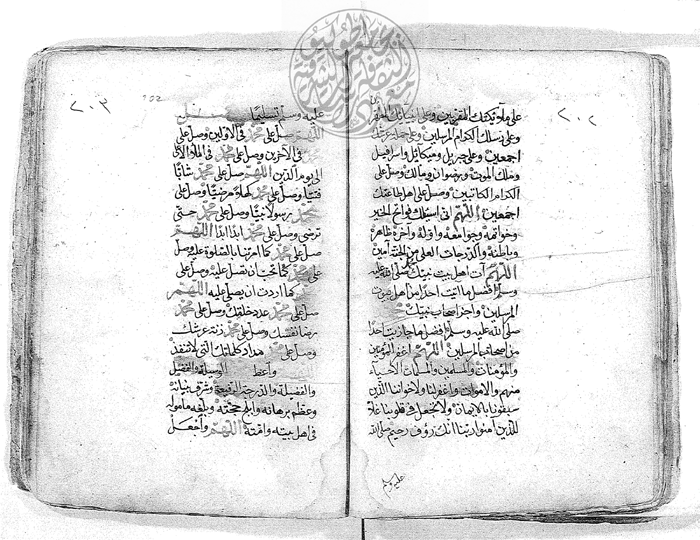 ٢٠٢
على ملائكتك المقربين وعلى انبيائك
وعلى رسلك الكرام المرسلين وعلى
اجمعين وعلى جبريل وميكائيل واسرافيل
وملك الموت ورضوان ومالك وصل على
الكرام الكاتبين وصل على اهل طاعتك
اجمعين اللهم انى اسئلك فواتح الخير
وخواتمه وجوامعه واوله وآخره ظاهره
وباطنه والدرجات العلى من الجنة آمين
اللهم آت اهل بيت نبيك صلى الله عليه
وسلم افضل ما اتيت احدا من اهل بيوت
المرسلين واجز اصحاب نبيك
صلى الله عليه وسلم افضل ما جازيت احدا
من اصحاب المرسلين اللهم اغفر للمؤمنين
والمؤمنات والمسلمين والمسلمات الاحياء
منهم والاموات واغفر لنا ولاخواننا الذين
سبقونا بالايمان ولا تجعل فى قلوبنا غلا
للذين آمنوا ربنا انك رؤف رحيم صلى الله
عليه وسلم
٢٠٣
عليه وسلم تسليما
اللهم صل على محمد فى الاولين وصل على
فى الآخرين وصل على محمد فى الملاء الاعلى
الى يوم الدين اللهم صل على محمد شابا
فتيا وصل على محمد كهلا مرضيا وصل على
محمد رسولا نبيا وصل على محمد حتى
ترضى وصل على محمد ابدا ابدا اللهم
صل على محمد كما امرتنا بالصلوة عليه وصل
على محمد كما تحب ان نصلى عليه وصل على
كما اردت ان يصلى عليه اللهم
صل على محمد عدد خلقك وصل على محمد
رضا نفسك وصل على محمد زنة عرشك
وصل على محمد مداد كلماتك التى لا تنفد
واعط الوسيلة والفضل
والفضيلة والدرجة الرفيعة وشرف بنيانه
وعظم برهانه وابلج حجته وبلغه مأموله
فى اهل بيته وامته اللهم واجعل